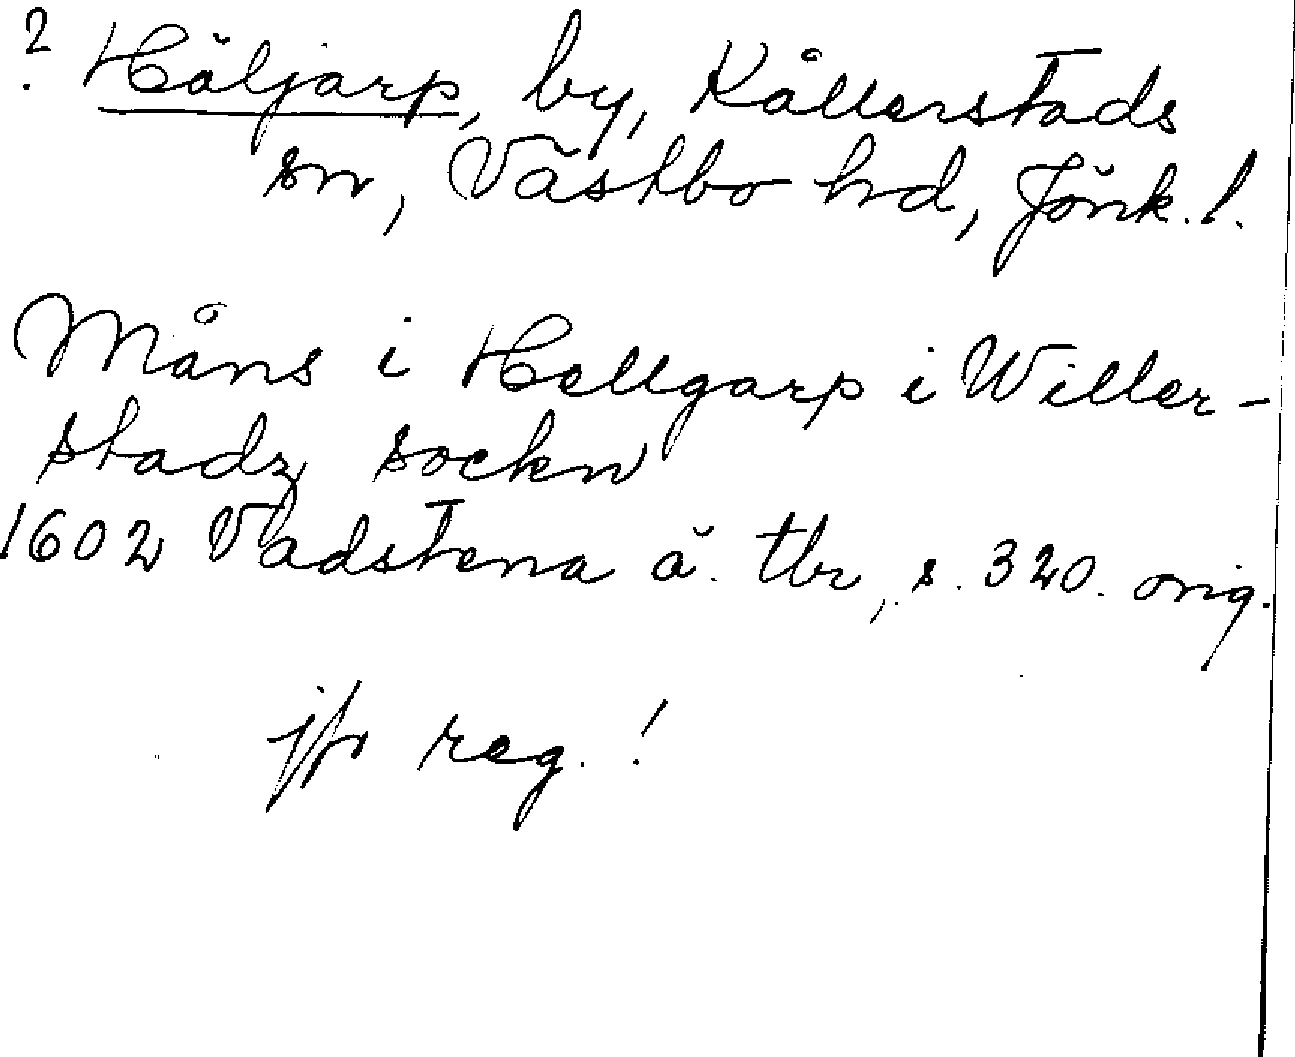 ? Häljarp, by, Kållerstads
sn, Västbo hd, Jönk. l.
Måns i Hellgarp i Willer-
stadz sockn
1602 Vadstena ä. tbr, s. 320. orig.
jfr reg.!